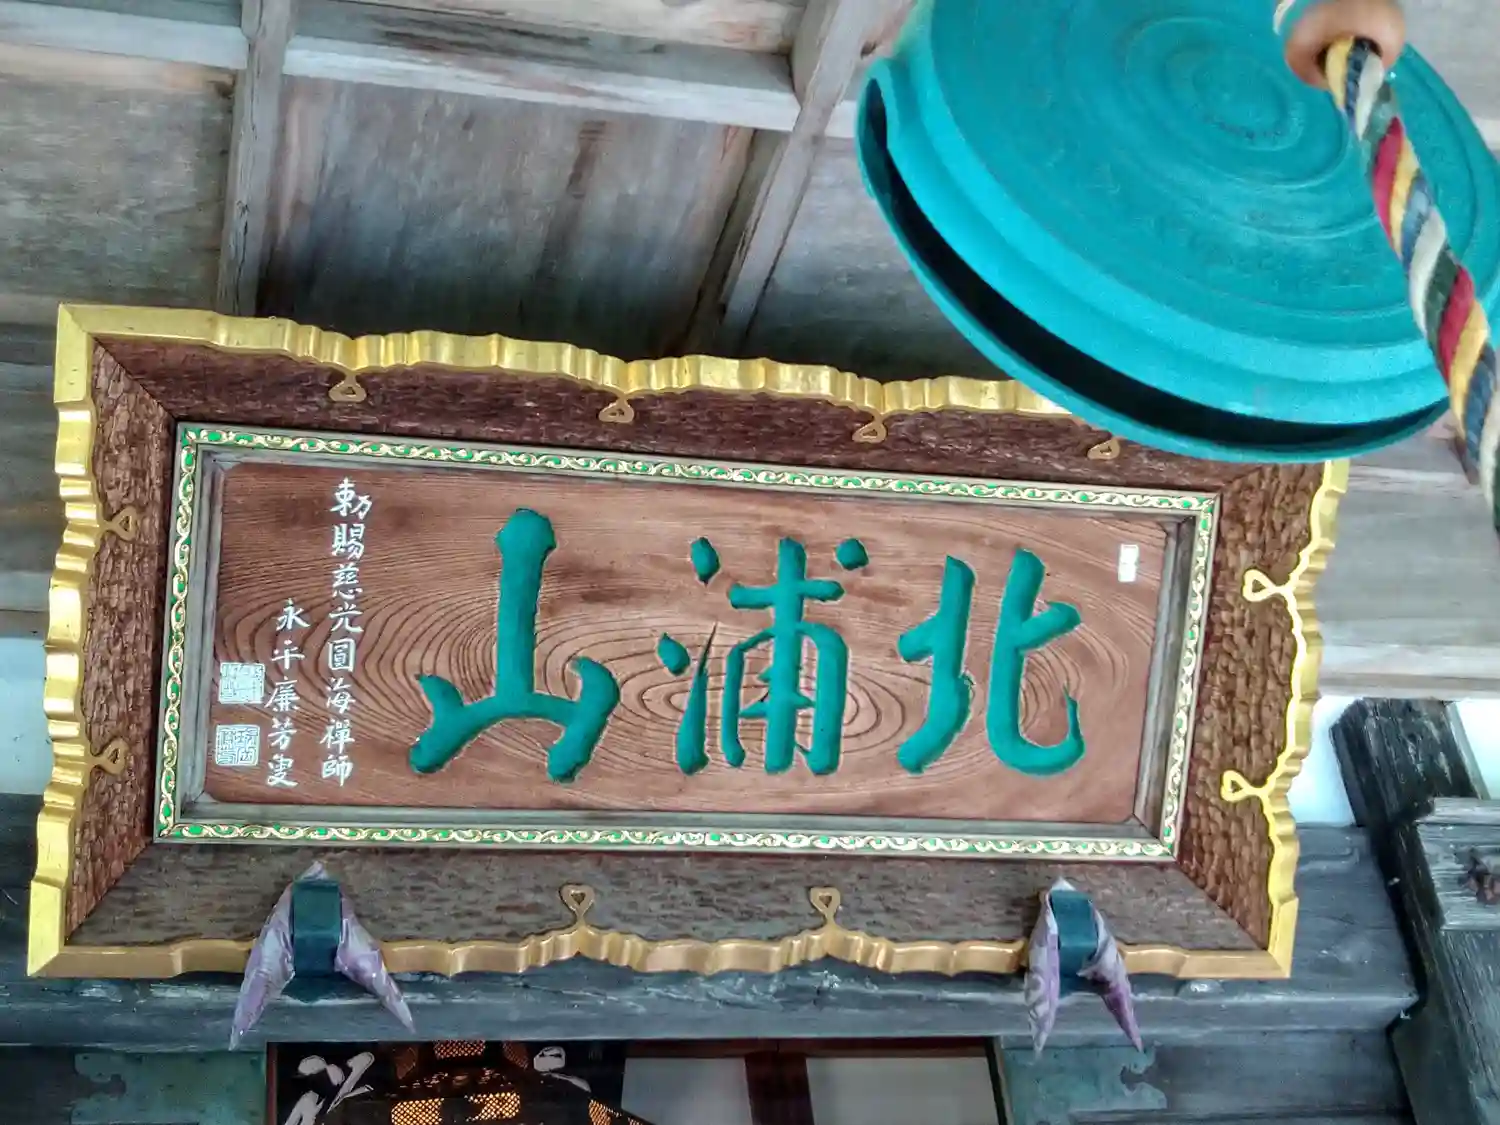 北浦山
勅賜慈光圓海禪師
永平廉芳叟